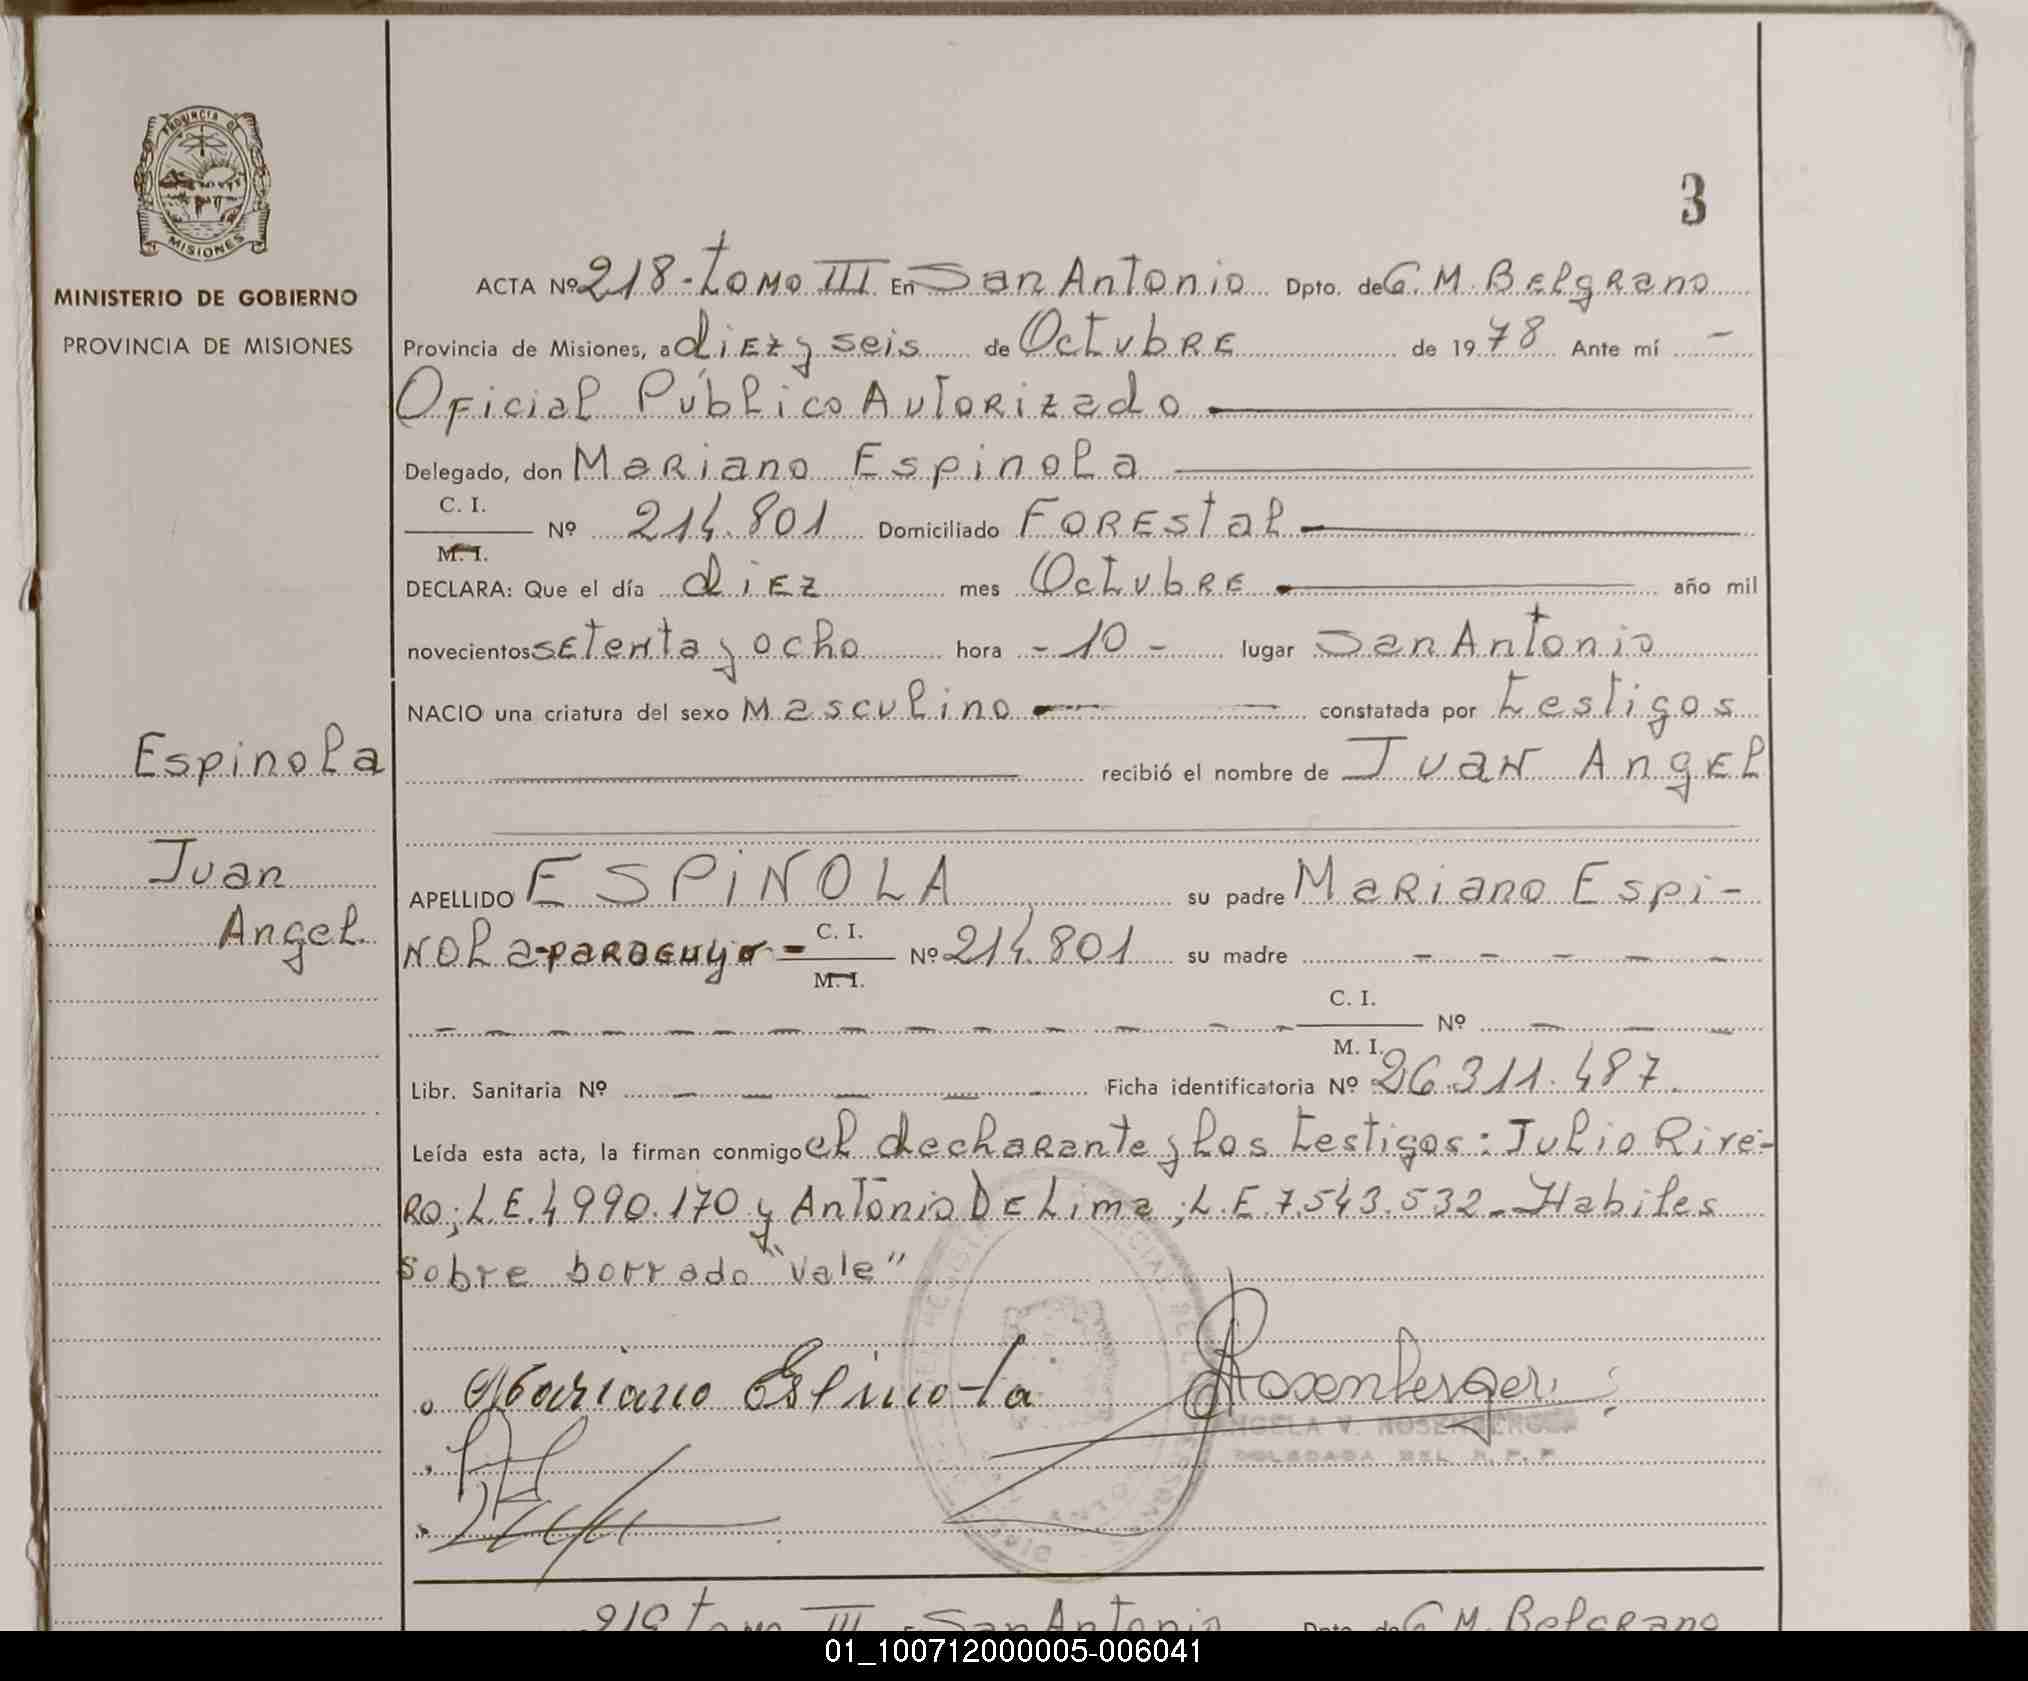 PROVINCIA DE
MISIONES
MINISTERIO DE GOBIERNO
PROVINCIA DE MISIONES
Espinola
Juan
Angel.
3
ACTA Nº 218-Tomo III En San Antonio Dpto. de G. M. Belgrano
Provincia de Misiones, a diez y seis de Octubre de 1978 Ante mí -
Oficial Público Autorizado
Delegado, don Mariano Espinola
C. I.
M. I. Nº 214.801 Domiciliado Forestal
DECLARA: Que el día diez mes Octubre año mil
novecientos setenta y ocho hora - 10 - lugar San Antonio
NACIO una criatura del sexo Masculino constatada por testigos
recibió el nombre de Juan Angel
APELLIDO ESPINOLA su padre Mariano Espi-
nola-paraguyo- C. I. M. I. Nº 214.801 su madre - - - - -
- - - - - - - - - - - - C. I. M. I. Nº - - -
Libr. Sanitaria Nº - - - - - Ficha identificatoria Nº 26.311.487.
Leída esta acta, la firman conmigo el declarante y los testigos: Julio Rive-
ro; L.E. 4990.170 y Antonio De Lima; L.E. 7.543.532. Habiles
sobre borrado "vale"
Mariano Espinola
Rosenberger
ANGELA V. ROSENBERGER
DELEGADA DEL R. P. P.
219 Tomo III En San Antonio Dpto. de G. M. Belgrano
01_100712000005-006041